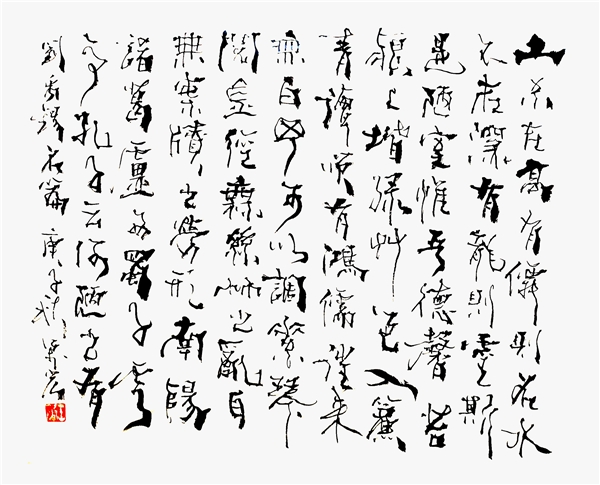 山不在高有僊則名水
不在深有龍則靈斯
是陋室惟吾德馨苔
痕上堦綠艸色入簾
青談笑有鴻儒往來
無白丁可以調素琴
閱金經無絲竹之亂耳
無案牘之勞形南陽
諸葛廬西蜀子雲
亭孔子云何陋之有
劉禹錫名篇 庚子秋